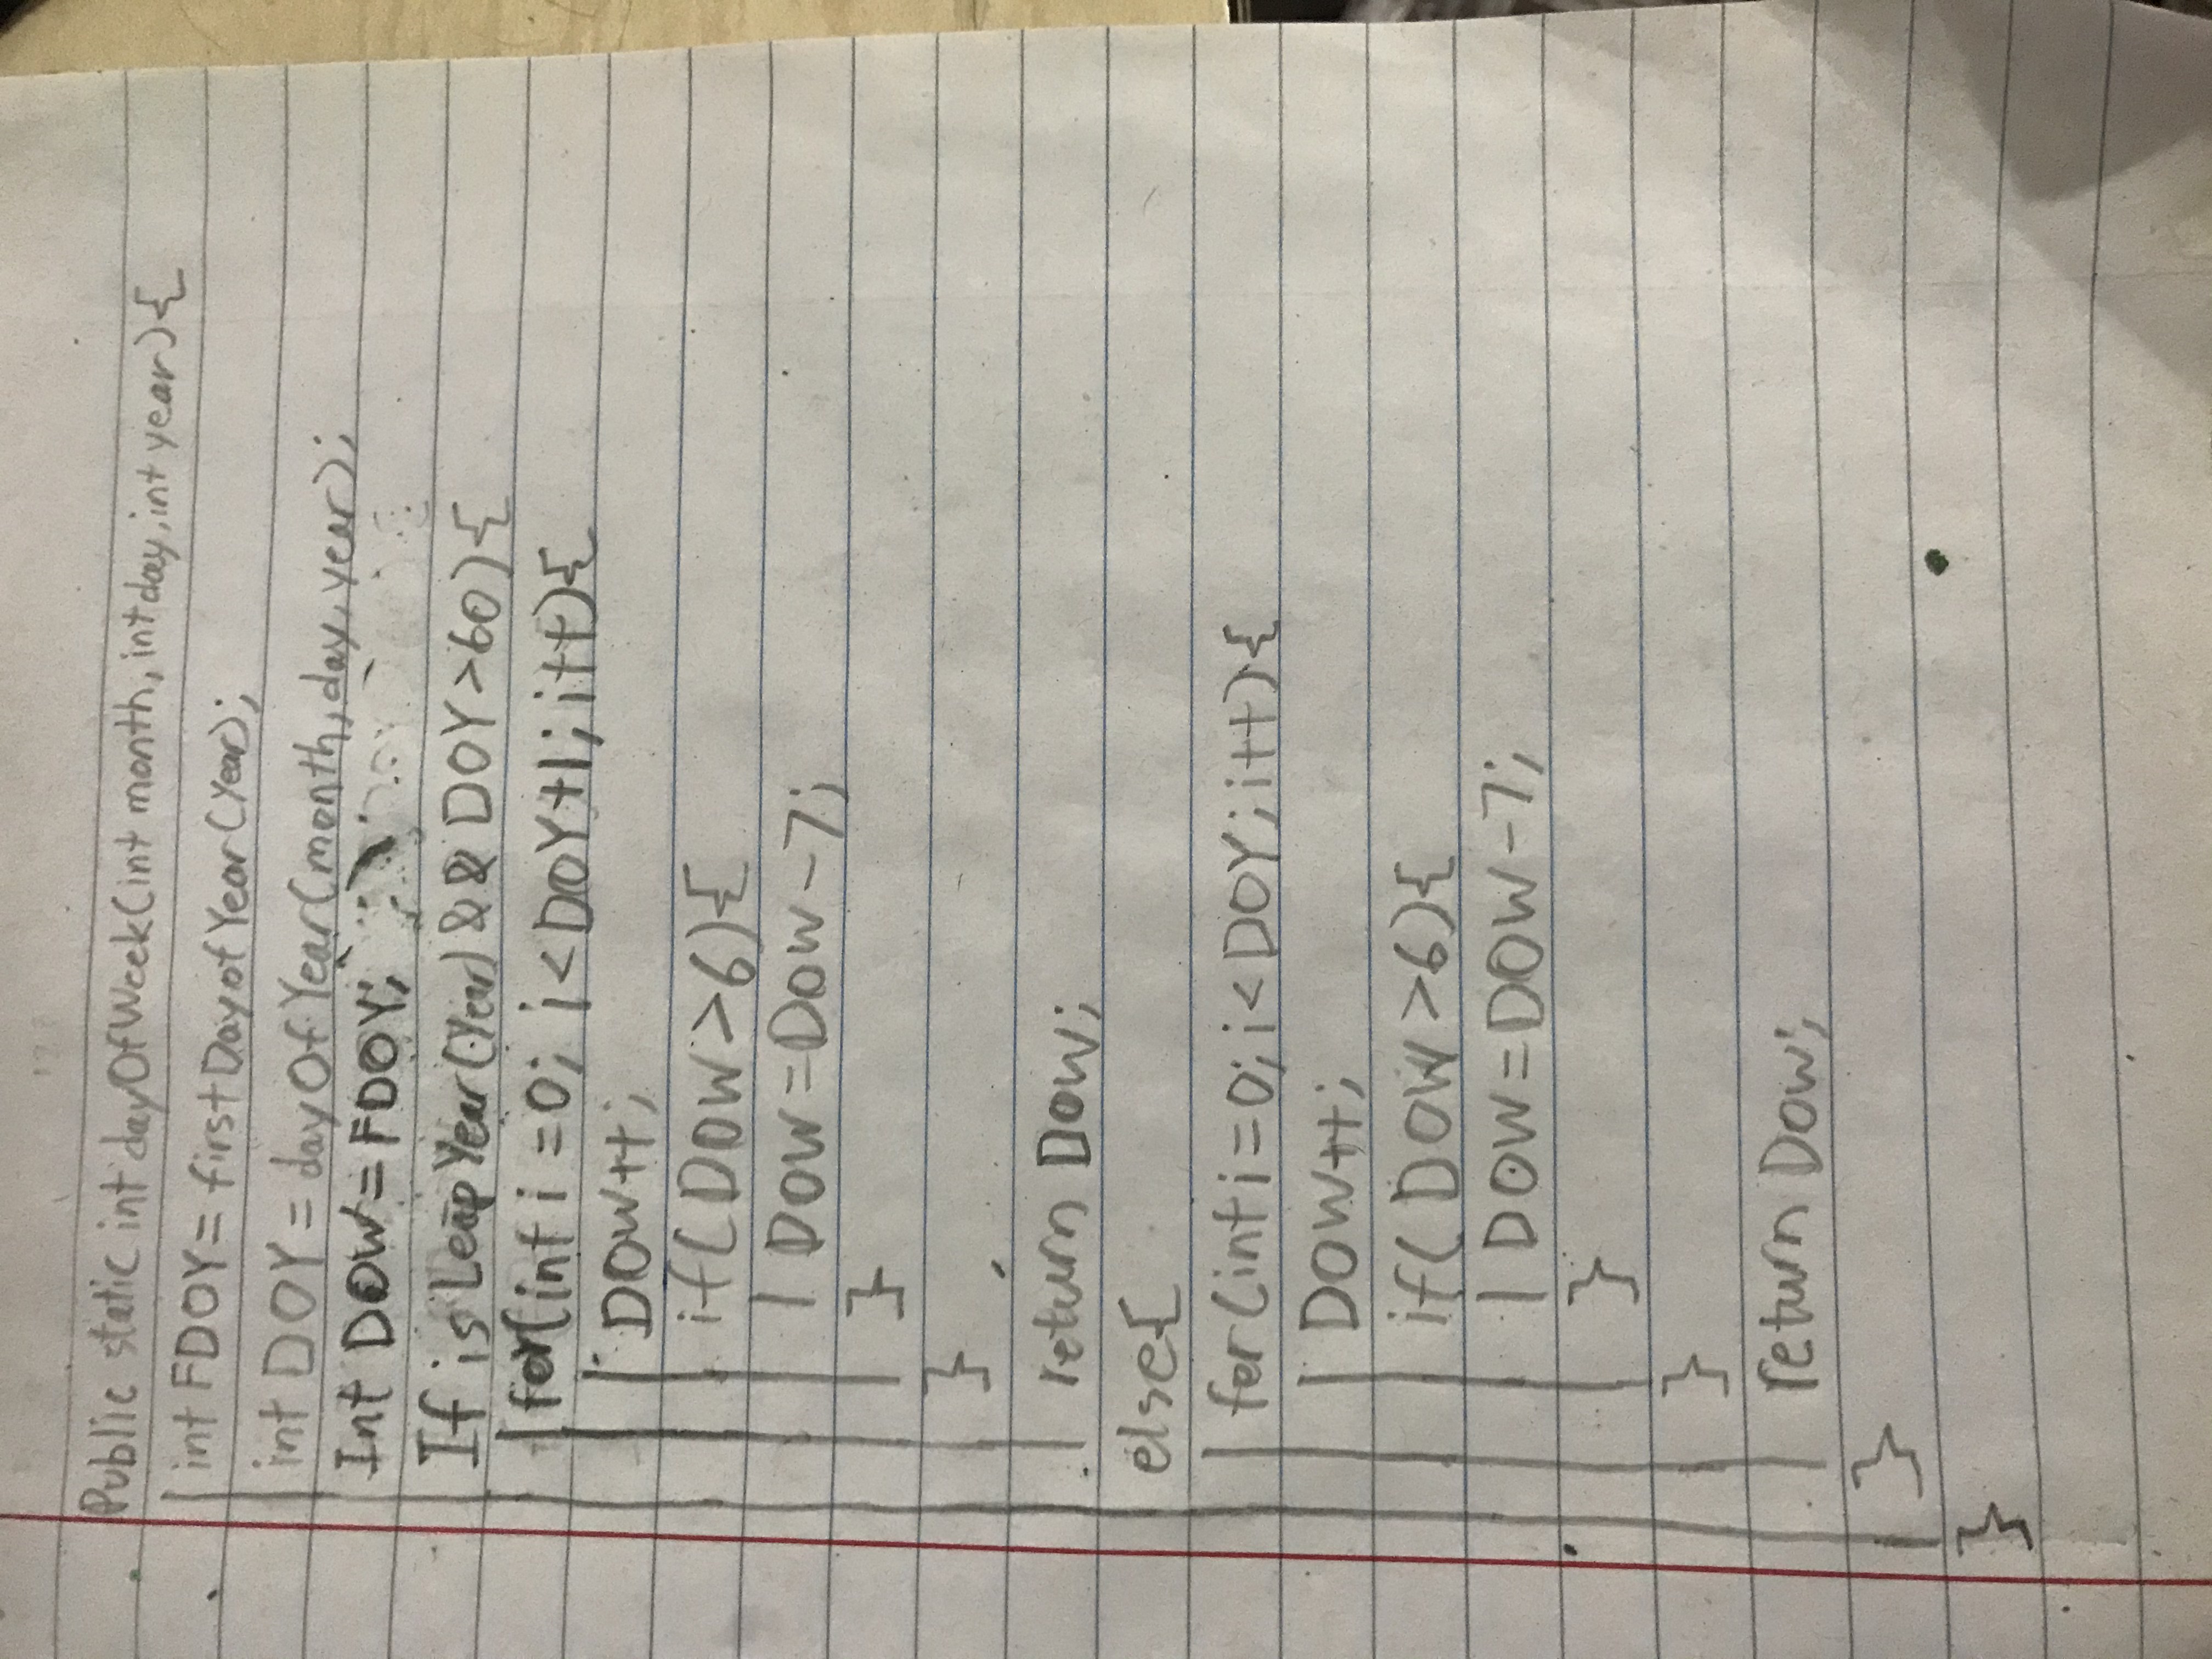 Public static int dayOfWeek(int month, int day, int year){
int FDOY = firstDayofYear(Year);
int DOY = dayOfYear(month, day, year);
Int DOW = FDOY;
If isLeapYear(Year) && DOY>60){
for(int i = 0; i < DOY+1; i++){
DOW++;
if(DOW>6){
DOW = DOW - 7;
}
}
return DOW;
else{
for(int i = 0; i < DOY; i++){
DOW++;
if(DOW>6){
DOW = DOW - 7;
}
}
return DOW;
}
}